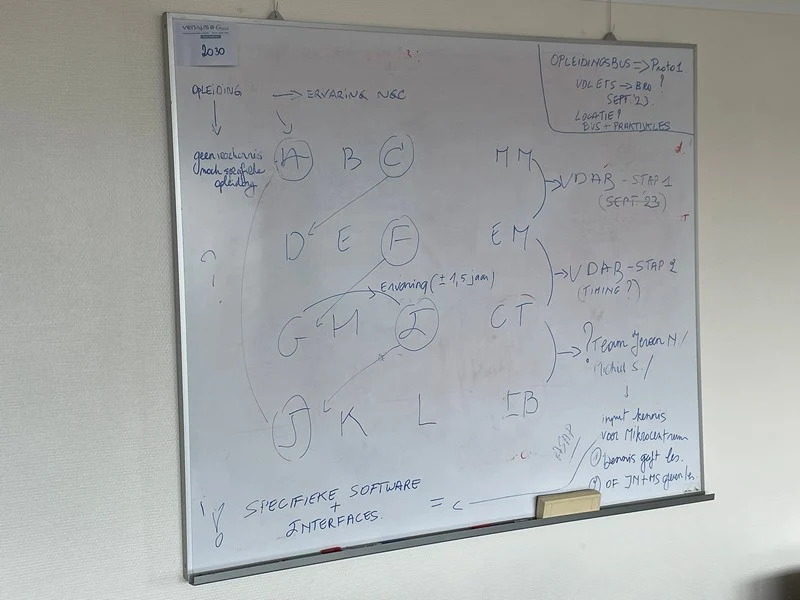 2030
OPLEIDINGSBUS => Proto 1
VDL ETS → BRU ?
SEPT. '23.
LOCATIE?
BUS + PRAKTIJKLES
OPLEIDING → ERVARING NGC
geen voorkennis
noch specifieke
opleiding
A B C MM
VDAB - STAP 1
(SEPT. '23)
D E F EM
VDAB - STAP 2
(TIMING ?)
Ervaring (± 1,5 jaar)
G H I CT
? Team Jeroen N /
Michiel S. /
J K L IB
input kennis
voor Mikrocentrum
① Dennis geeft les.
② OF JN + MS geven les.
ASAP
! SPECIFIEKE SOFTWARE
+
INTERFACES. =